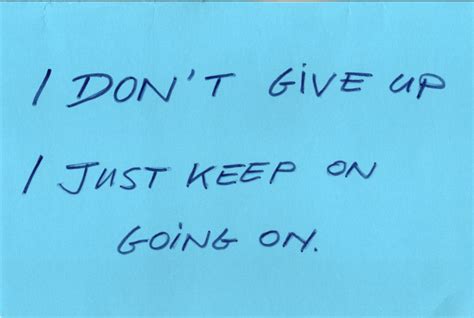 I DON'T GIVE UP
I JUST KEEP ON
GOING ON.